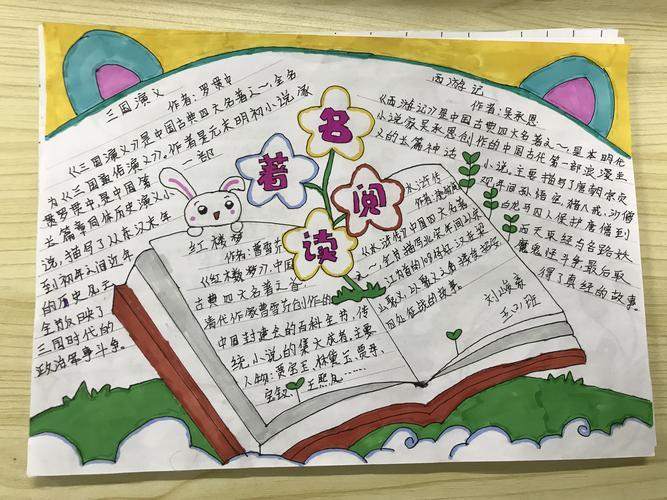 名
著
阅
读
三国演义
作者:罗贯中
《三国演义》是中国古典四大名著之一,全名
为《三国通俗演义》。作者是元末明初小说
一部
罗贯中是中国第
长篇章回体历史演义小
说,描写了从东汉末年
到初年之间近百年
的历史风云
全部反映了
三国时代的
政治军事斗争。
红楼梦
作者:曹雪芹
《红楼梦》,中国
古典四大名著之首
清代作家曹雪芹创作的
中国封建社会的百科全书,传
统小说的集大成者,主要
人物:贾宝玉,林黛玉,贾母,
宝钗、王熙凤……
水浒传
作者:施耐庵
《水浒传》中国四大名著
之一,年间以宋
江为首的108好汉在梁
山聚义,以及聚义之后接受招安
四处征战的故事。
西游记
作者:吴承恩
《西游记》是中国古典四大名著之一,是明代
小说家吴承恩创作的中国古代第一部浪漫主
义的长篇神话小说。主要描写了唐朝
年间孙悟空、猪八戒、沙僧
白龙马四人保护唐僧到
西天取经与各路妖
魔鬼怪斗争最后取
得了真经的故事。